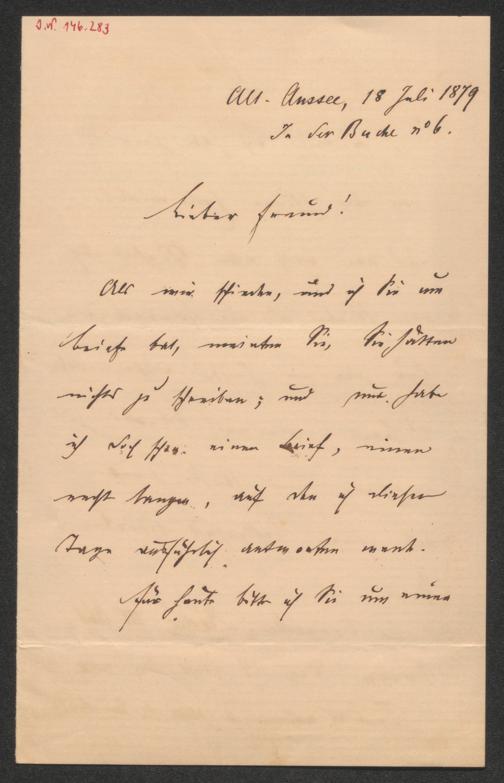 J.N. 146.283
Alt-Aussee, 18 Juli 1879
In der Buche no 6.
Lieber Freund!
Als wir schieden, und ich Sie um
Briefe bat, meinten Sie, Sie hätten
nichts zu schreiben; und nun habe
ich doch schon einen Brief, einen
recht langen, auf den ich dieser
Tage ausführlich antworten werde.
Für heute bitte ich Sie um einen